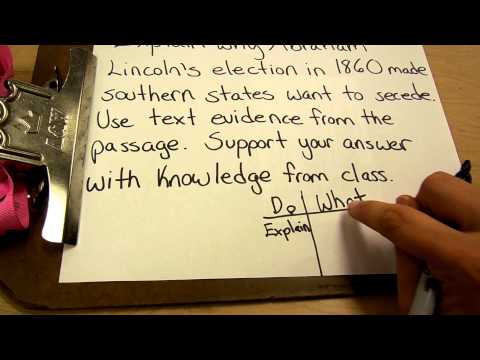 Explain why Abraham
Lincoln's election in 1860 made
southern states want to secede.
Use text evidence from the
passage. Support your answer
with knowledge from class.
Do What
Explain